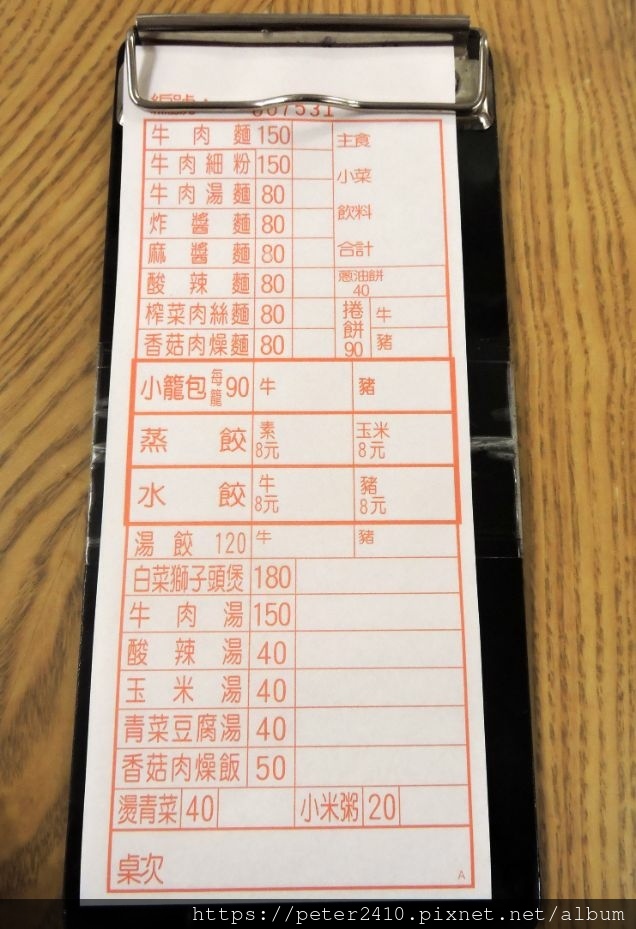 編號：
667531
牛肉麵 150 主食
牛肉細粉 150 小菜
牛肉湯麵 80 飲料
炸醬麵 80
麻醬麵 80 合計
酸辣麵 80 蔥油餅 40
榨菜肉絲麵 80 捲餅 90 牛
香菇肉燥麵 80 豬
小籠包 每籠 90 牛 豬
蒸餃 素 8元 玉米 8元
水餃 牛 8元 豬 8元
湯餃 120 牛 豬
白菜獅子頭煲 180
牛肉湯 150
酸辣湯 40
玉米湯 40
青菜豆腐湯 40
香菇肉燥飯 50
燙青菜 40 小米粥 20
桌次
A
https://peter2410.pixnet.net/album